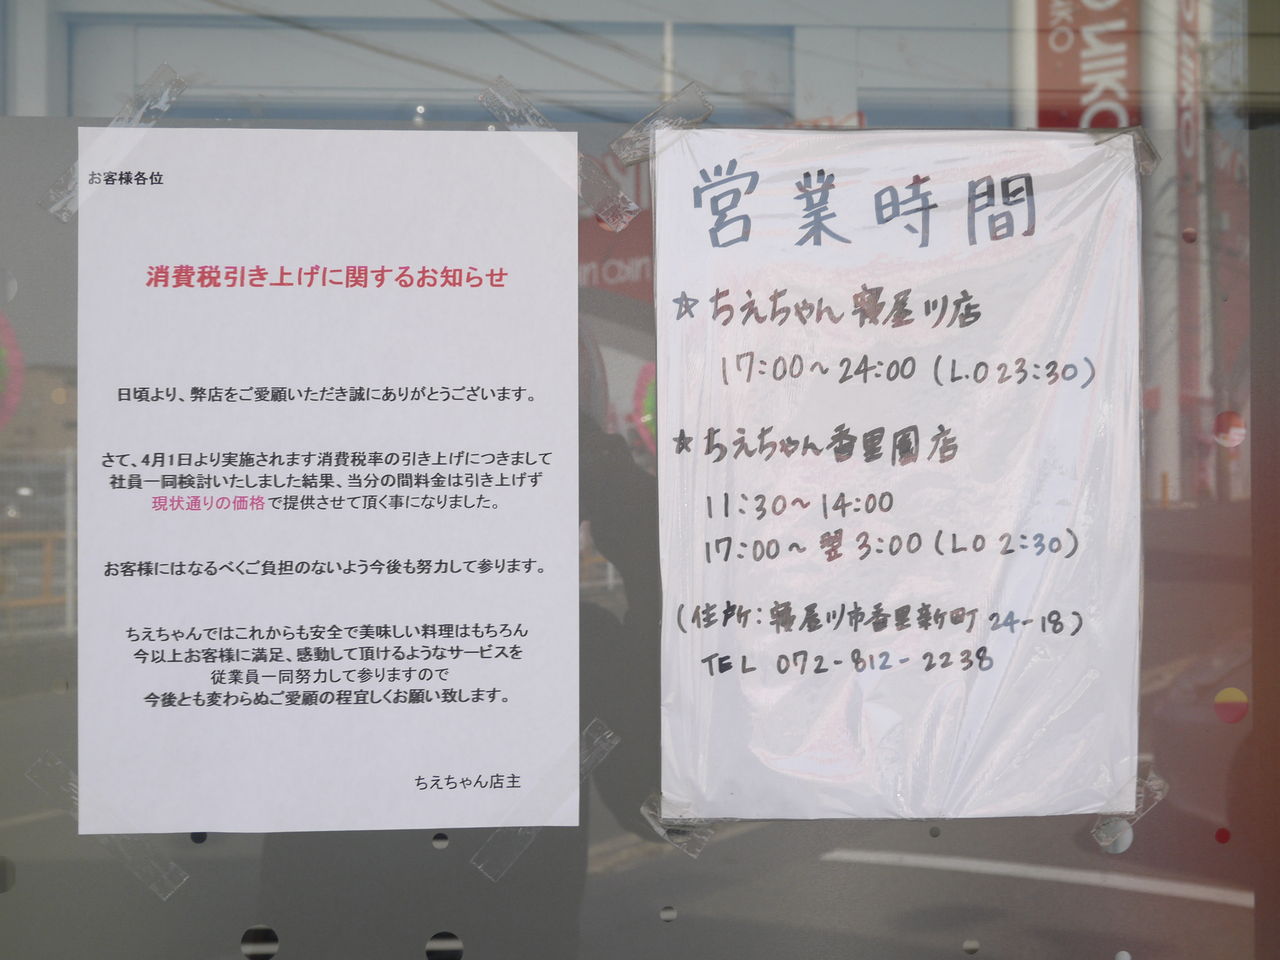 お客様各位
消費税引き上げに関するお知らせ
日頃より、弊店をご愛顧いただき誠にありがとうございます。
さて、4月1日より実施されます消費税率の引き上げにつきまして
社員一同検討いたしました結果、当分の間料金は引き上げず
現状通りの価格で提供させて頂く事になりました。
お客様にはなるべくご負担のないよう今後も努力して参ります。
ちえちゃんではこれからも安全で美味しい料理はもちろん
今以上お客様に満足、感動して頂けるようなサービスを
従業員一同努力して参りますので
今後とも変わらぬご愛顧の程宜しくお願い致します。
ちえちゃん店主
営業時間
☆ちえちゃん寝屋川店
17:00～24:00(L.O 23:30)
☆ちえちゃん香里園店
11:30～14:00
17:00～翌3:00(LO 2:30)
(住所:寝屋川市香里新町24-18)
TEL 072-812-2238